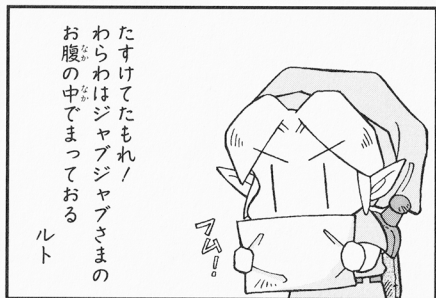 たすけてたもれ！
わらわはジャブジャブさまの
お腹の中でまっておる
ルト
フム！